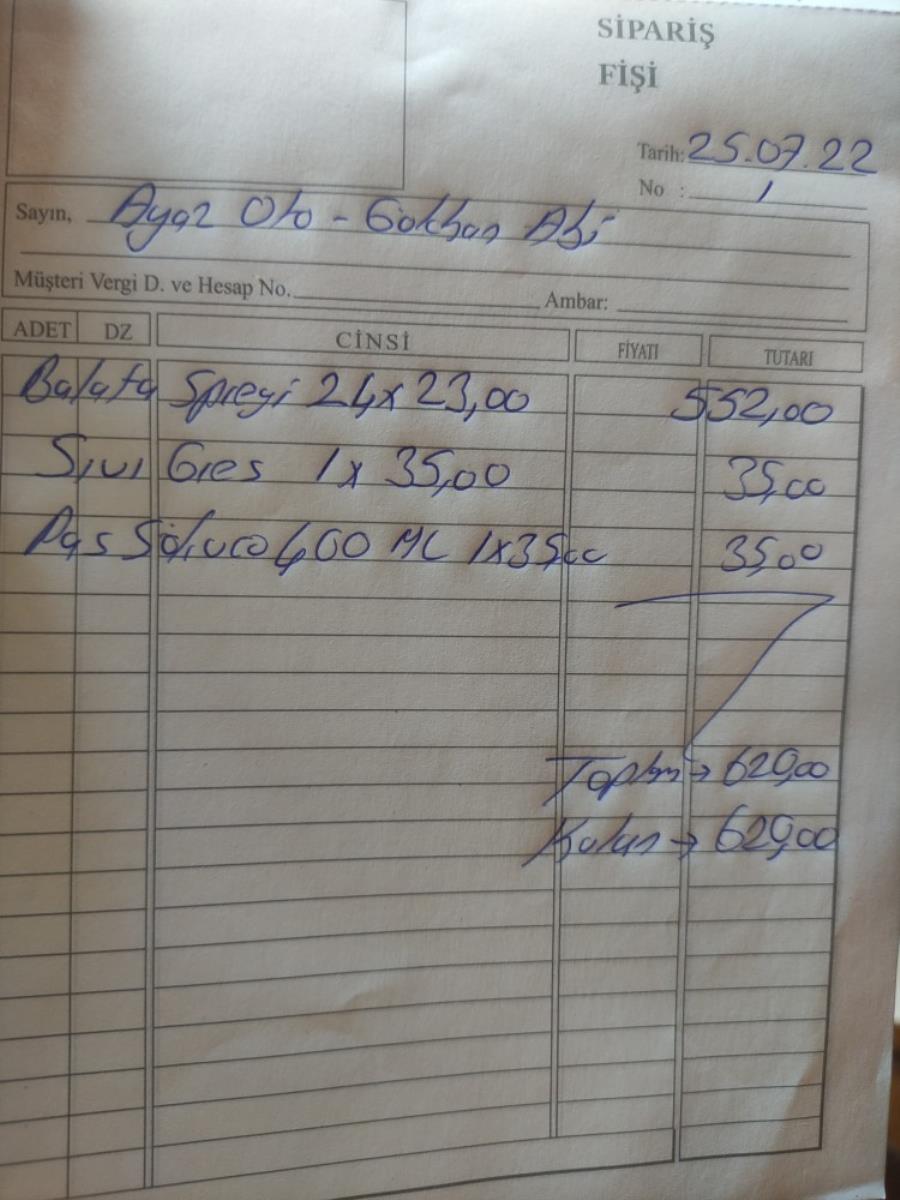 SİPARİŞ
FİŞİ
Tarih: 25.07.22
No : 1
Sayın, Ayaz Oto - Gokhan Abi
Müşteri Vergi D. ve Hesap No. Ambar:
ADET DZ CİNSİ FİYATI TUTARI
Balata Spreyi 24x23,00 552,00
Sıvı Gres 1x35,00 35,00
Pas Sökücü 400 ML 1x35,00 35,00
Toplam → 620,00
Kalan → 620,00